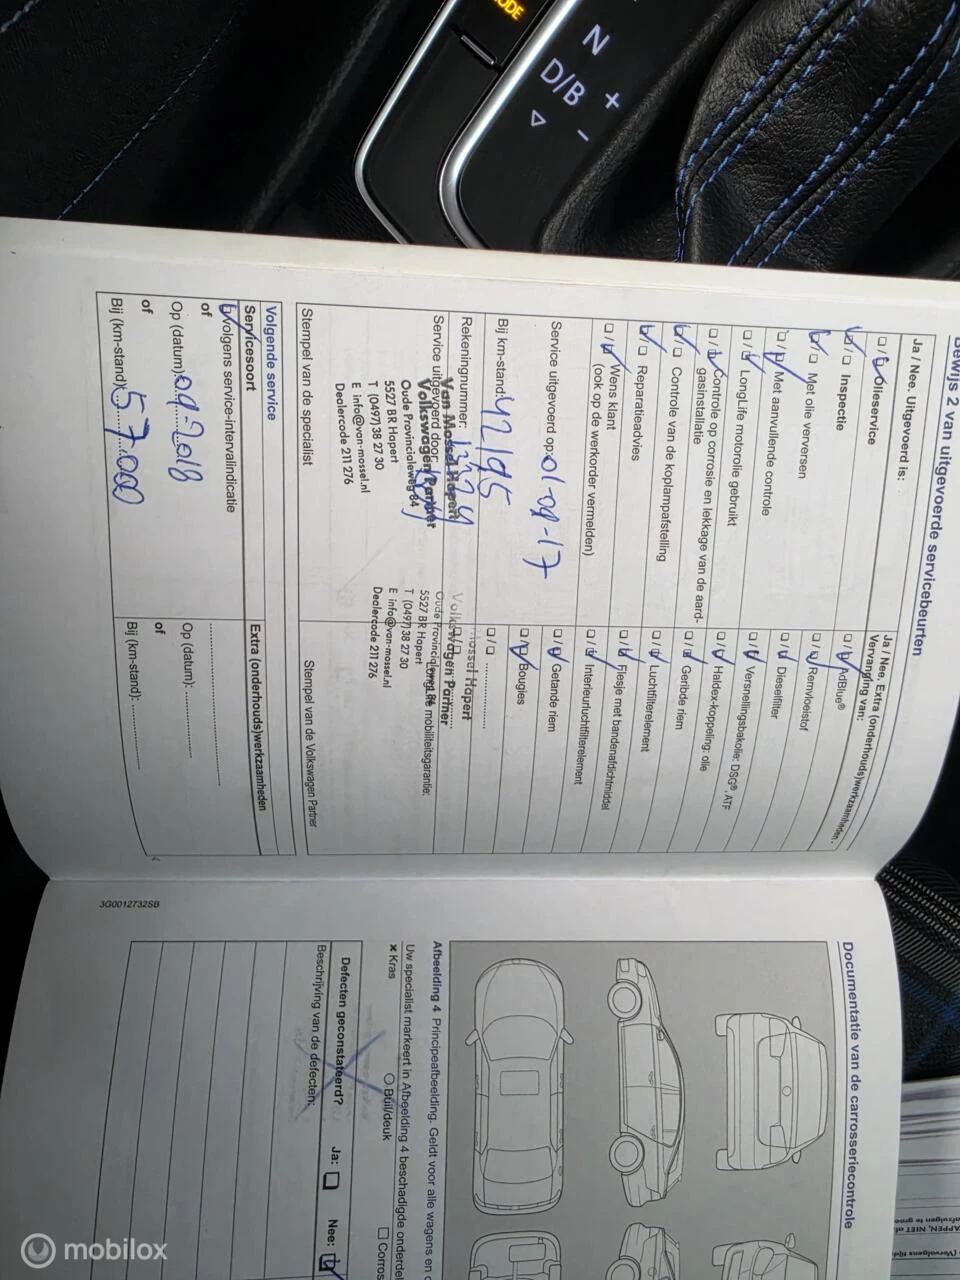 MODE
N
D/B
+
-
Bewijs 2 van uitgevoerde servicebeurten
Ja / Nee. Uitgevoerd is:
Olieservice
Inspectie
Met olie verversen
Met aanvullende controle
LongLife motorolie gebruikt
Controle op corrosie en lekkage van de aard-
gasinstallatie
Controle van de koplampafstelling
Reparatieadvies
Wens klant
(ook op de werkorder vermelden)
Service uitgevoerd op: 01-09-17
Bij km-stand: 42195
Rekeningnummer:
Service uitgevoerd door:
Van Mossel Hapert
Volkswagen Partner
Oude Provincialeweg 84
5527 BR Hapert
T (0497) 38 27 30
E info@van-mossel.nl
Dealercode 211 276
Stempel van de specialist
Ja / Nee, Extra (onderhouds)werkzaamheden.
Vervanging van:
AdBlue®
Remvloeistof
Dieselfilter
Versnellingsbakolie: DSG®, ATF
Haldex-koppeling: olie
Geribde riem
Luchtfilterelement
Flesje met bandenafdichtmiddel
Interieurluchtfilterelement
Getande riem
Bougies
LongLife mobiliteitsgarantie:
Mossel Hapert
Volkswagen Partner
Oude Provincialeweg 84
5527 BR Hapert
T (0497) 38 27 30
E info@van-mossel.nl
Dealercode 211 276
Stempel van de Volkswagen Partner
Volgende service
Servicesoort
volgens service-intervalindicatie
of
Op (datum): 09-2018
of
Bij (km-stand): 57.000
Extra (onderhouds)werkzaamheden
Op (datum):
of
Bij (km-stand):
3G0012732SB
Documentatie van de carrosseriecontrole
Afbeelding 4 Principeafbeelding. Geldt voor alle wagens en
Uw specialist markeert in Afbeelding 4 beschadigde onderdel
× Kras
○ Buil/deuk
Corros
Defecten geconstateerd?
Ja:
Nee:
Beschrijving van de defecten:
mobilox